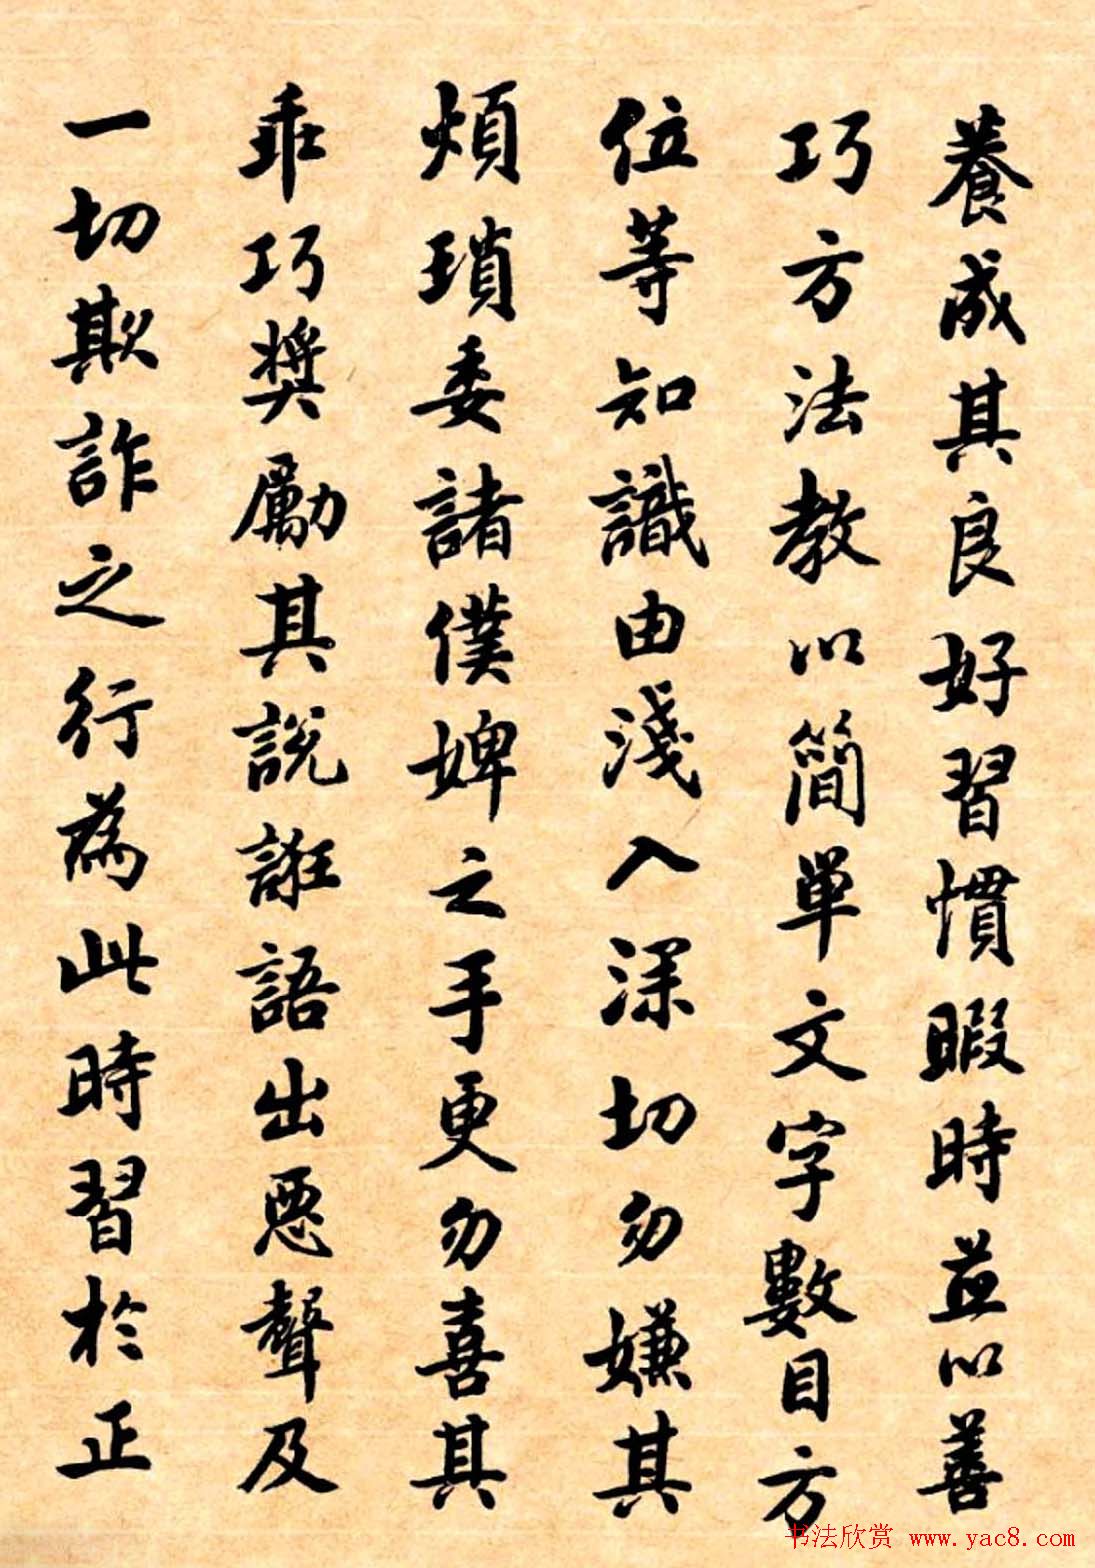 養成其良好習慣暇時並以善
巧方法教以簡單文字數目方
位等知識由淺入深切勿嫌其
煩瑣委諸僕婢之手更勿喜其
乖巧獎勵其說誑語出惡聲及
一切欺詐之行為此時習於正
书法欣赏 www.yac8.com